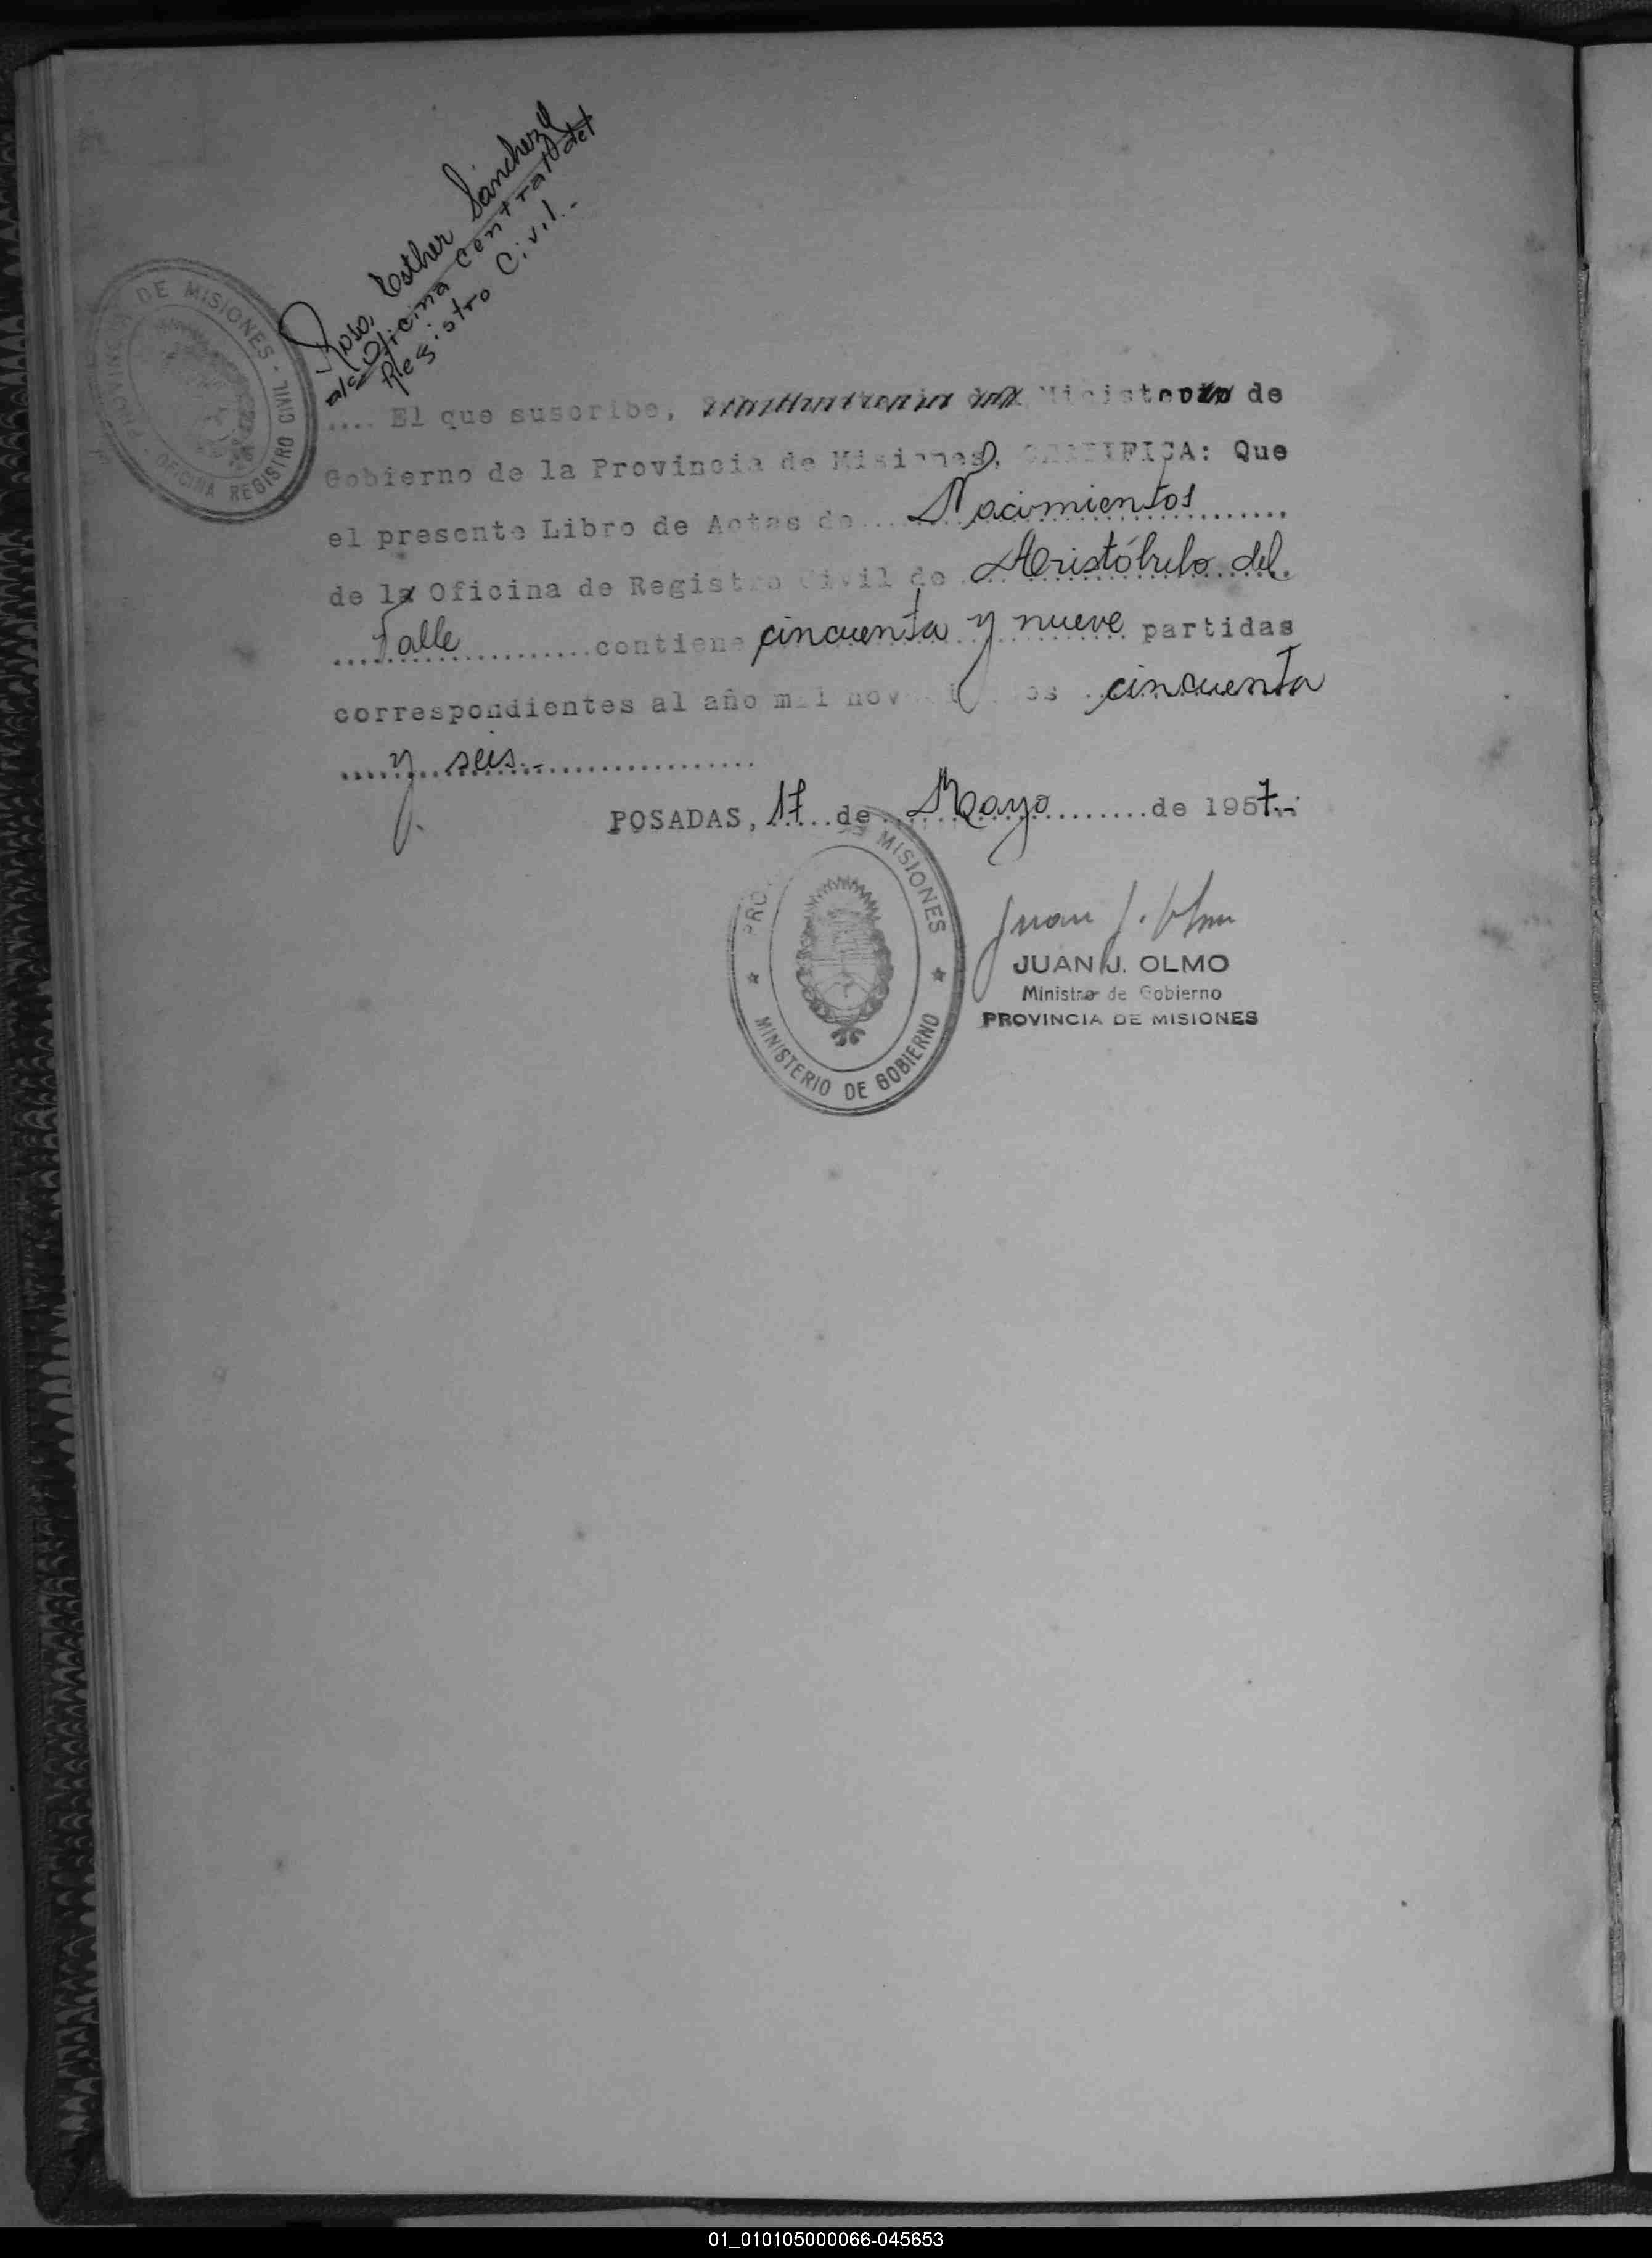 Rosa Esther Sánchez
a/c Oficina Central del
Registro Civil.-
PROVINCIA DE MISIONES - OFICINA REGISTRO CIVIL
.... El que suscribe, Ministro de
Gobierno de la Provincia de Misiones, CERTIFICA: Que
el presente Libro de Actas de.... Nacimientos
de la Oficina de Registro Civil de .... Aristóbulo del
Valle contiene cincuenta y nueve partidas
correspondientes al año mil novecientos cincuenta
y seis.-
POSADAS, 17 de Mayo de 1957.-
PROVINCIA DE MISIONES
MINISTERIO DE GOBIERNO
Juan J. Olmo
JUAN J. OLMO
Ministro de Gobierno
PROVINCIA DE MISIONES
01_010105000066-045653